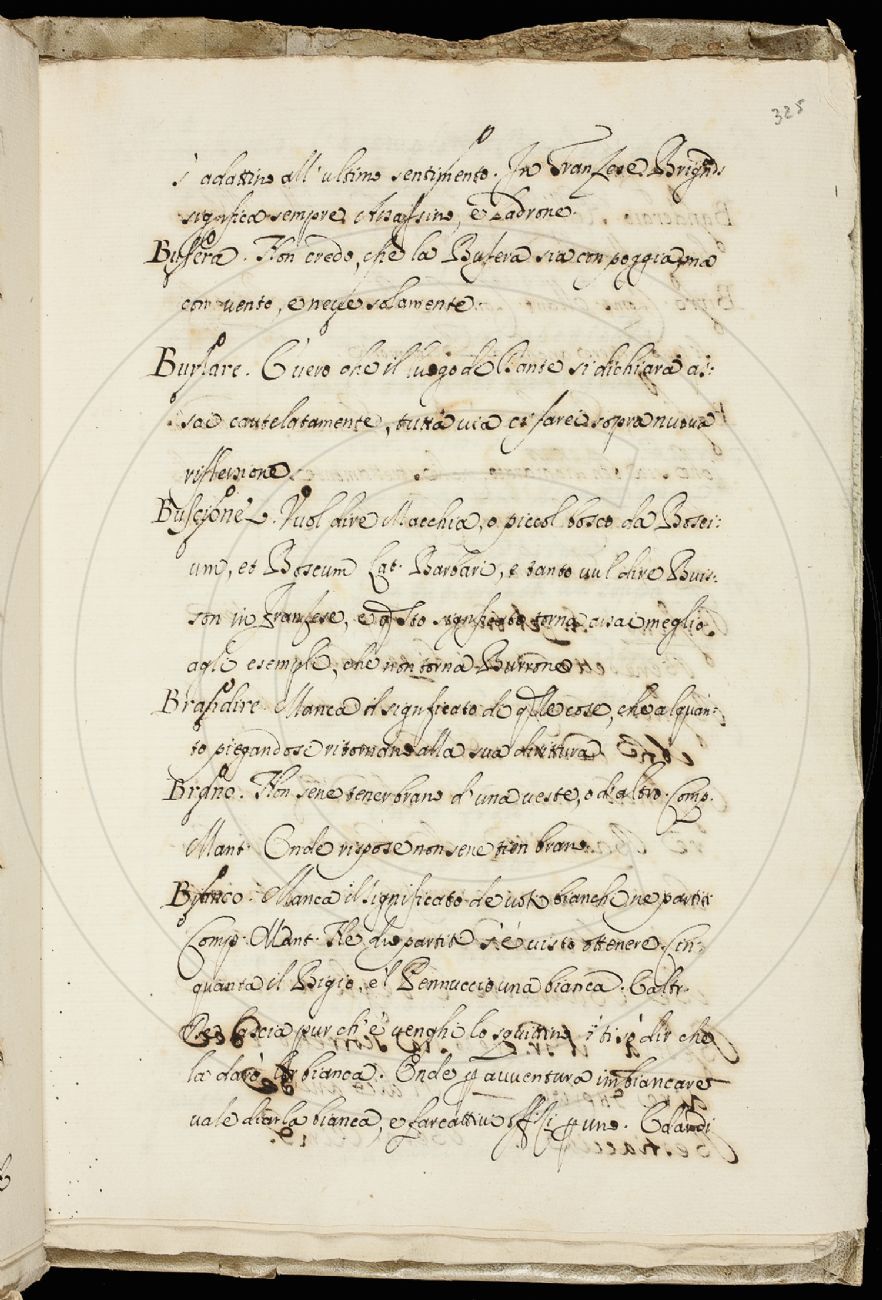 325
s' adattino all' ultimo sentimento. In Franzese Brigand
significa sempre Assassino, e Ladrone.
Bufera. Non credo, che la Bufera sia con pioggia, ma
con vento, e neve solamente.
Burlare. È vero che il luogo di Dante si dichiara as:
sai cautelatamente, tutta via ci farei sopra nuova
riflessione
Buscione. Vuol dire Macchia, o piccol bosco da Bosci:
um, et Boscum Lat. Barbari, e tanto vuol dire Buis:
son in Franzese, e qsto significato torna assai meglio
agli esempli, che non torna Burrone
Brandire. Manca il significato di qlle cose, che alquan:
to piegandosi ritornano alla sua dirittura
Brano. Non sene tener brano d' una veste, o d' altro. Comp.
Mant. Onde rispose non sene tien brano
Bianco. Manca il significato de voti bianchi ne partiti
Comp. Mant. Ne du partiti s' è visto ottenere Cin:
quanta il Bigio, e 'l Pennuccio una bianca. E altr.
lascia pur ch' e' venghi lo squittino i' ti so dir che
la darò bianca. Onde p avventura imbiancare
vale dar la bianca, e far cattivi offizi p uno. E dar di